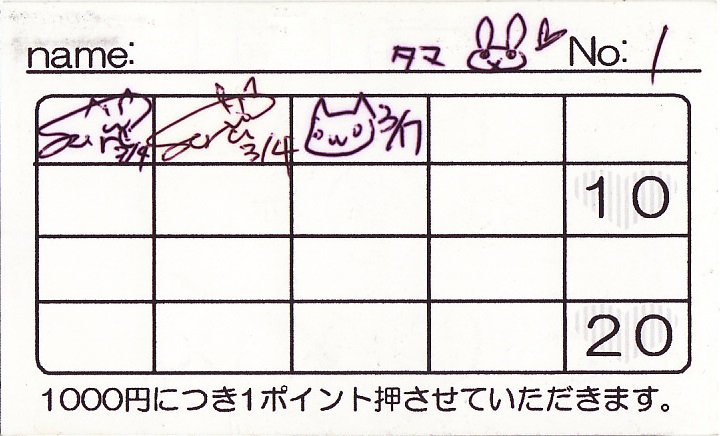 name: タマ No: 1
3/4 3/4 3/17
10
20
1000円につき1ポイント押させていただきます。